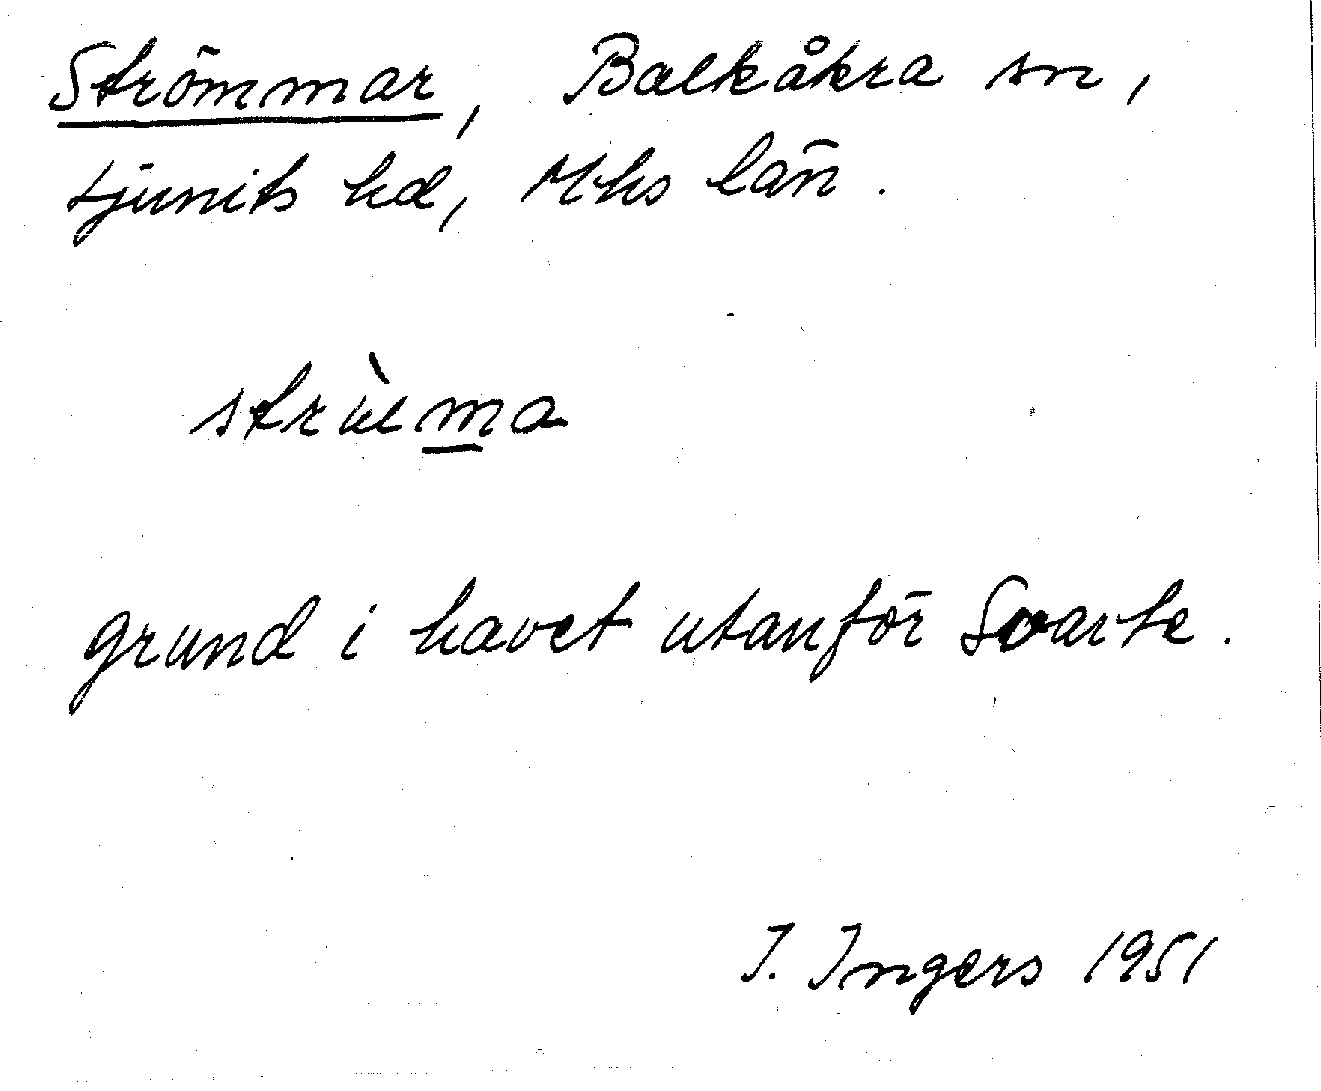 Strömmar, Balkåkra sn,
Ljunits hd, Mhs län.
strùma
grund i havet utanför Svarte.
I. Ingers 1951